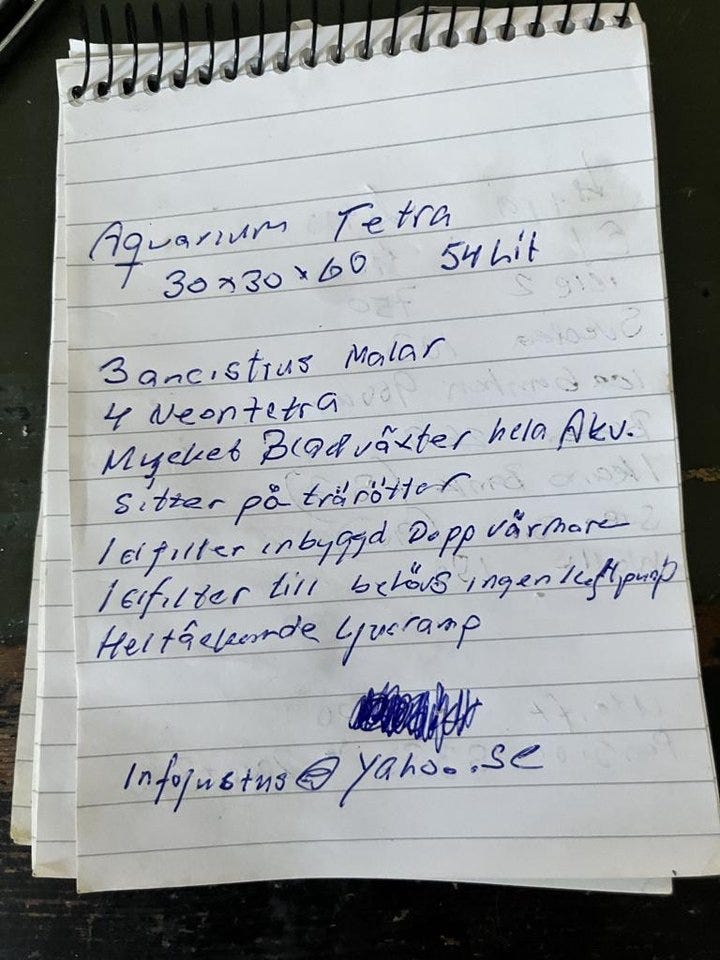 Aquarium Tetra
30x30x60 54 lit
3 ancistrus Malar
4 Neontetra
Mycket Bladväxter hela Akv.
Sitter på trärötter
1 elfilter inbyggd Doppvärmare
1 elfilter till behövs ingen luftpump
Heltäckande ljusramp
Infojustus@yahoo.se